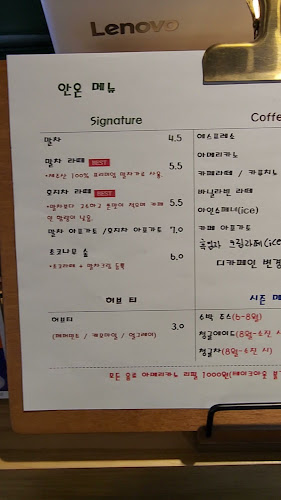 Lenovo
안온 메뉴
Signature
말차 4.5
말차 라떼 BEST 5.5
*제주산 100% 프리미엄 말차가루 사용
호지차 라떼 BEST 5.5
*말차보다 고소하고 쓴맛이 적으며 카페인 함량이 낮음.
말차 아포가토 /호지차 아포가토 7.0
초코나무 숲 6.0
*초코라떼 + 말차크림 듬뿍
허브 티
허브티 3.0
(페퍼민트 / 캐모마일 / 얼그레이)
Coffe
에스프레소
아메리카노
카페라떼 / 카푸치노
바닐라빈 라떼
아인슈페너(ice)
카페 아포가토
흑임자 크림라떼(ice
디카페인 변경
시즌 메
수박 주스(6-8월)
청귤에이드(8월-소진 시)
청귤차(8월-소진 시)
모든 음료 아메리카노 리필 1000원(테이크아웃 불